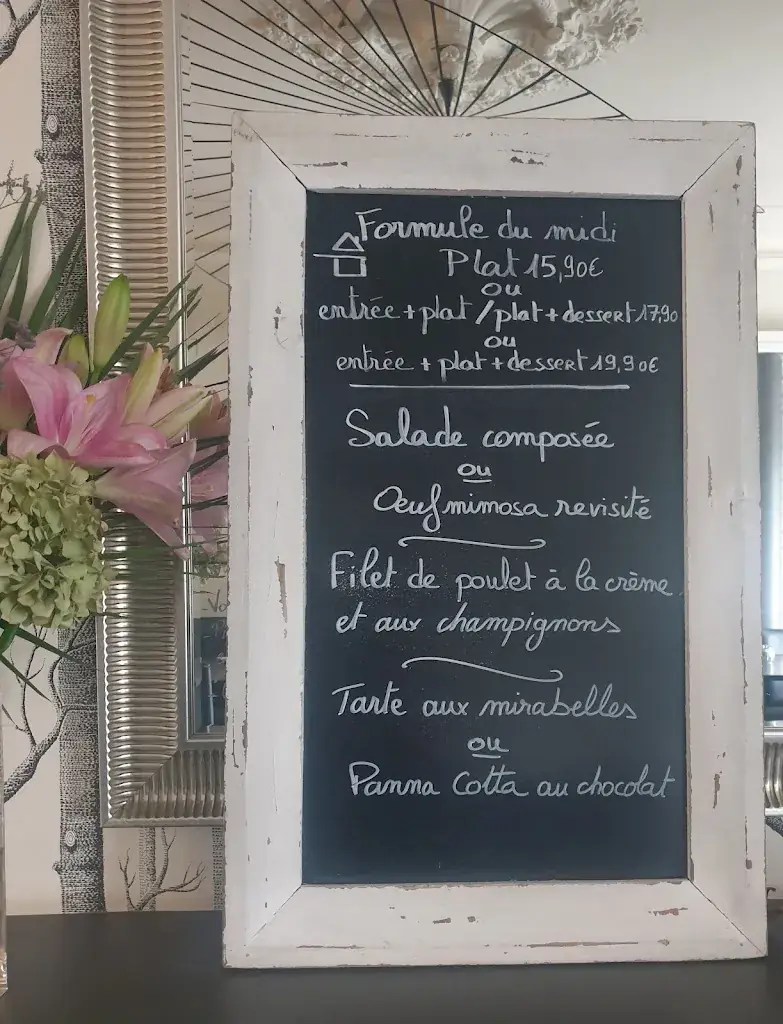 Formule du midi
Plat 15,90€
ou
entrée + plat / plat + dessert 17,90
ou
entrée + plat + dessert 19,90€
Salade composée
ou
Oeuf mimosa revisité
Filet de poulet à la crème
et aux champignons
Tarte aux mirabelles
ou
Panna Cotta au chocolat